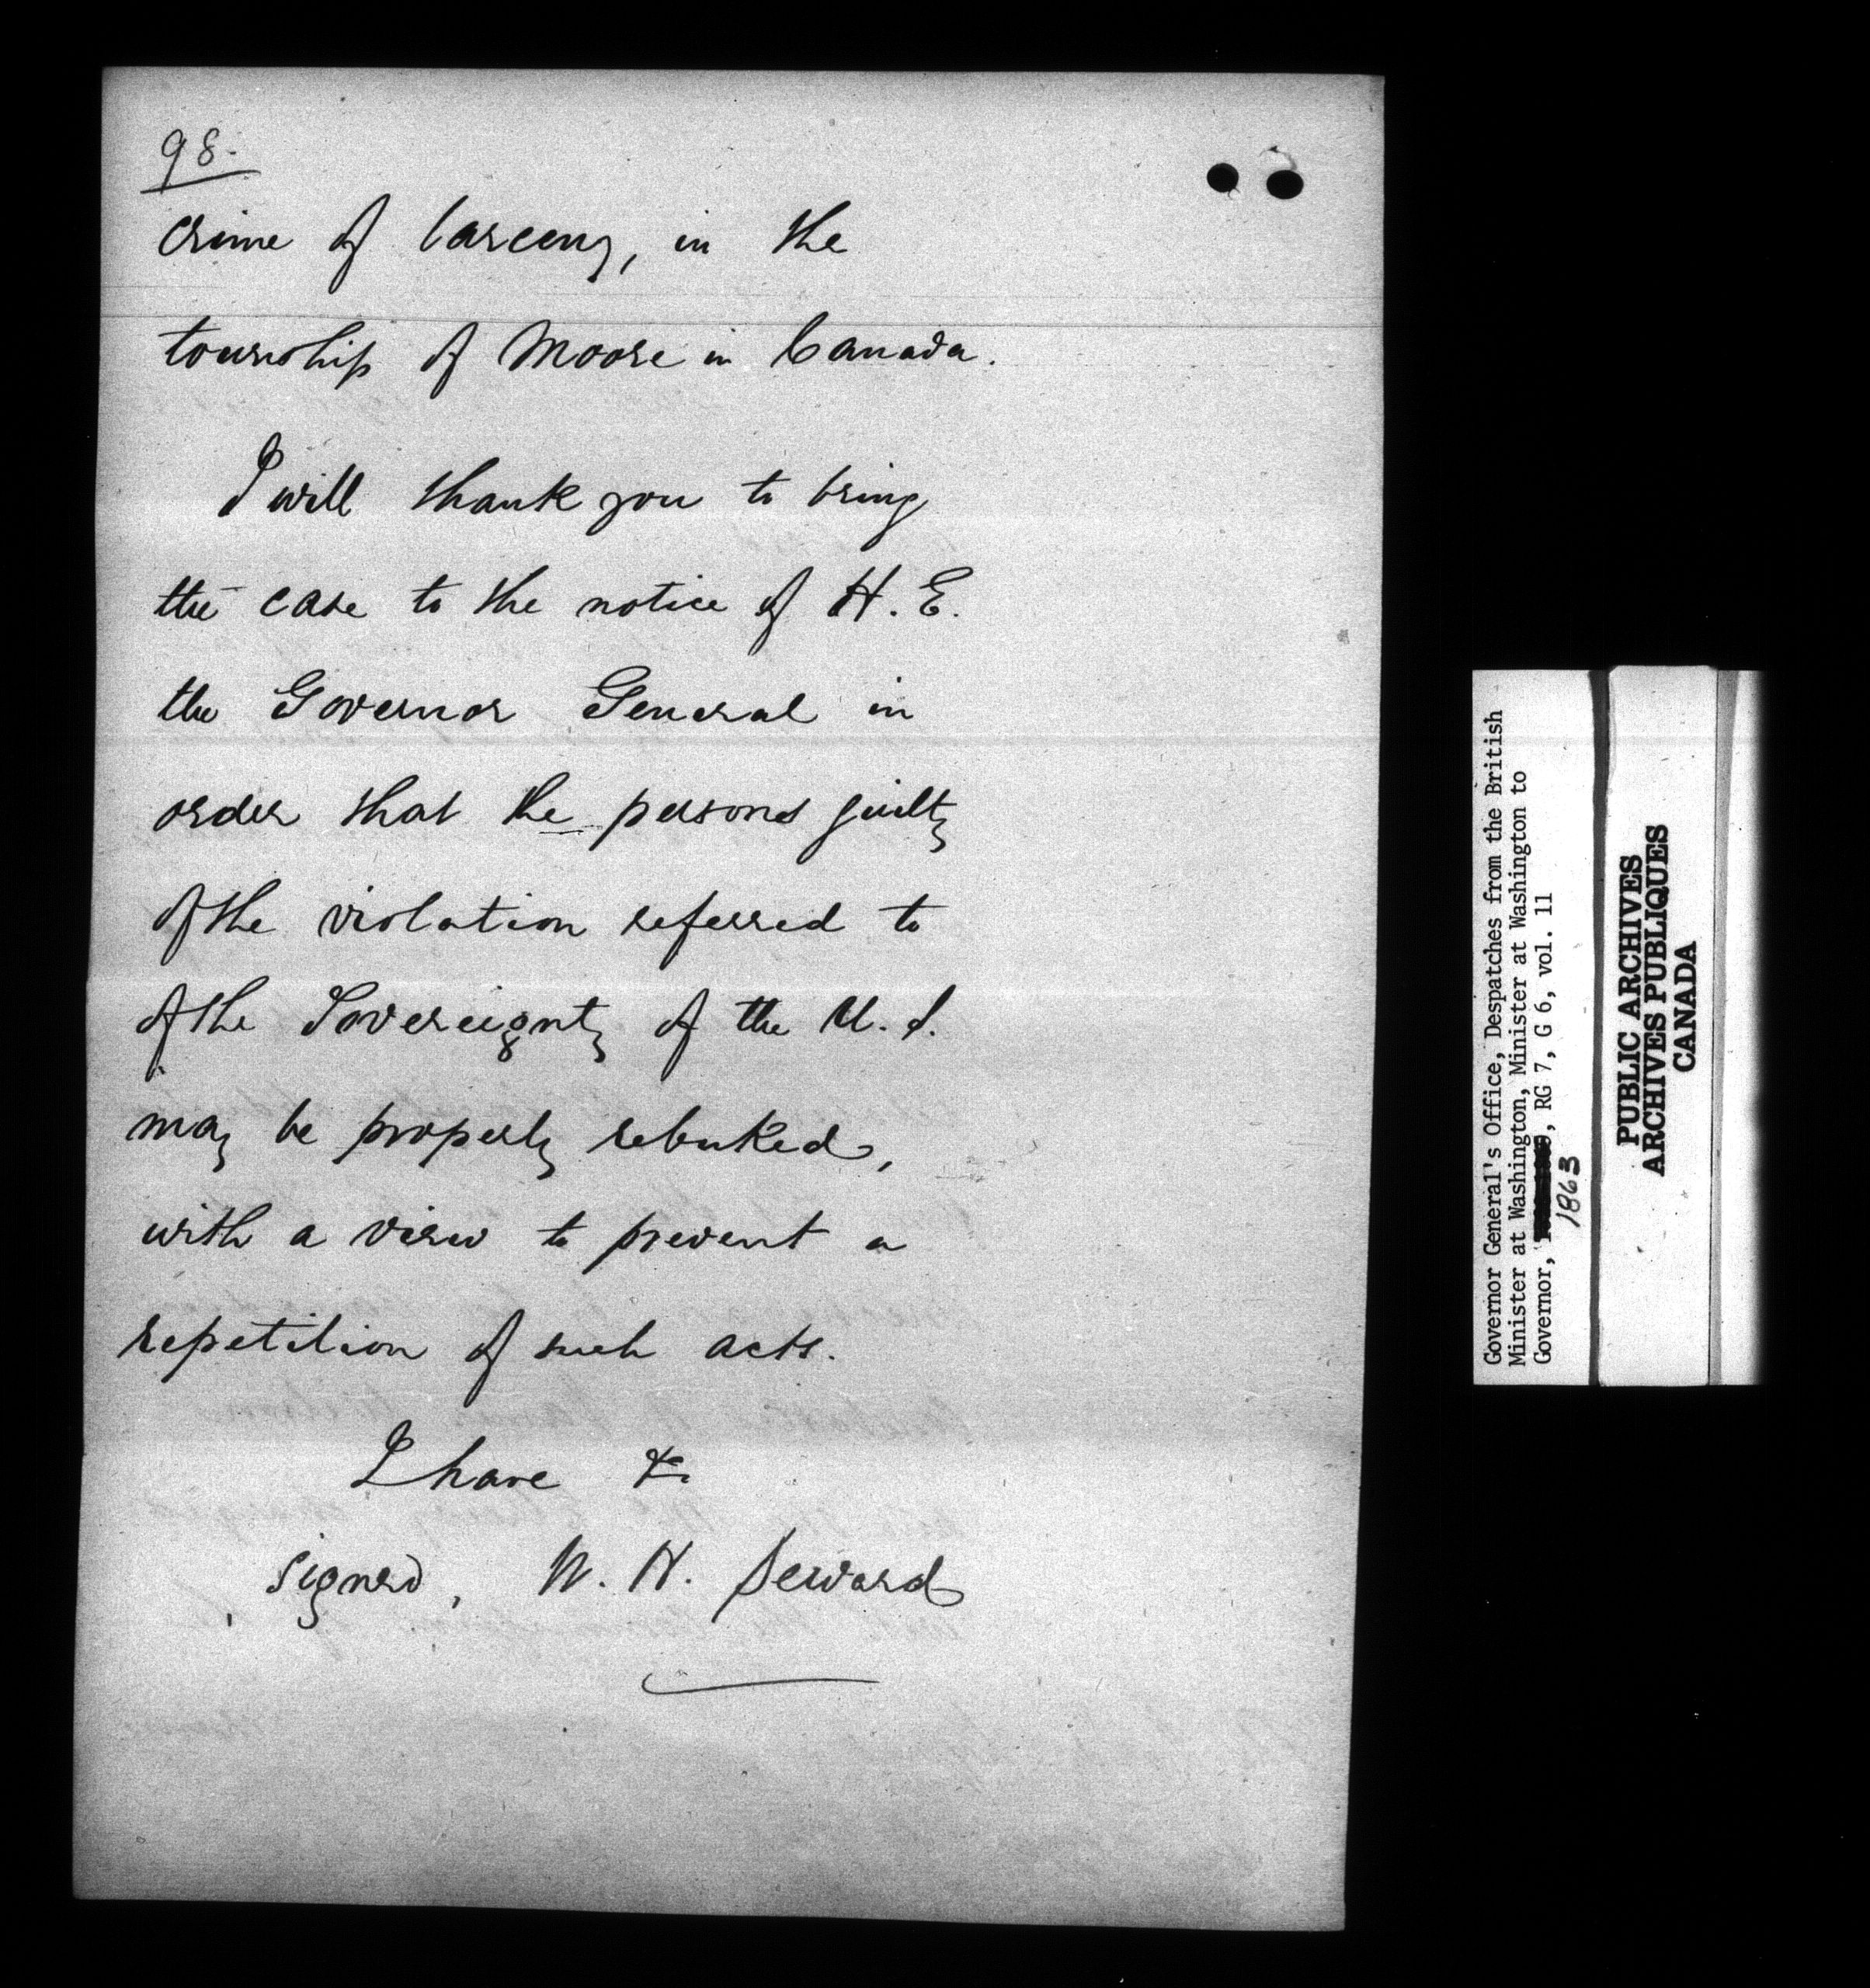 98.
crime of larceny, in the
township of Moore in Canada.
I will thank you to bring
the case to the notice of H. E.
the Governor General in
order that the persons guilty
of the violation referred to
of the Sovereignty of the U. S.
may be properly rebuked,
with a view to prevent a
repetition of such acts.
I have &c
signed, W. H. Seward
Governor General's Office, Despatches from the British
Minister at Washington, Minister at Washington to
Governor, , RG 7, G 6, vol. 11
1863
PUBLIC ARCHIVES
ARCHIVES PUBLIQUES
CANADA